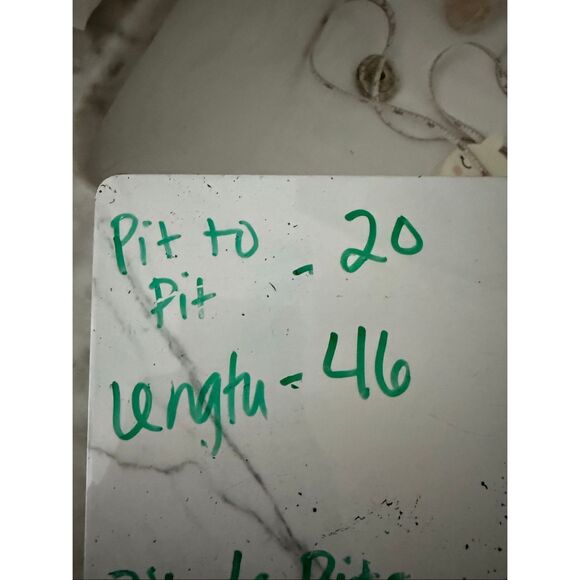 Pit to
Pit - 20
Length - 46